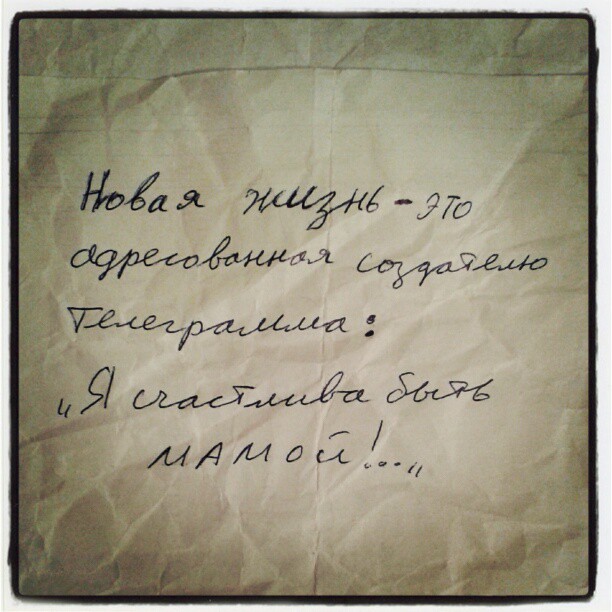 Новая жизнь - это
адресованная создателю
телеграмма:
„Я счастлива быть
МАМОЙ!...„